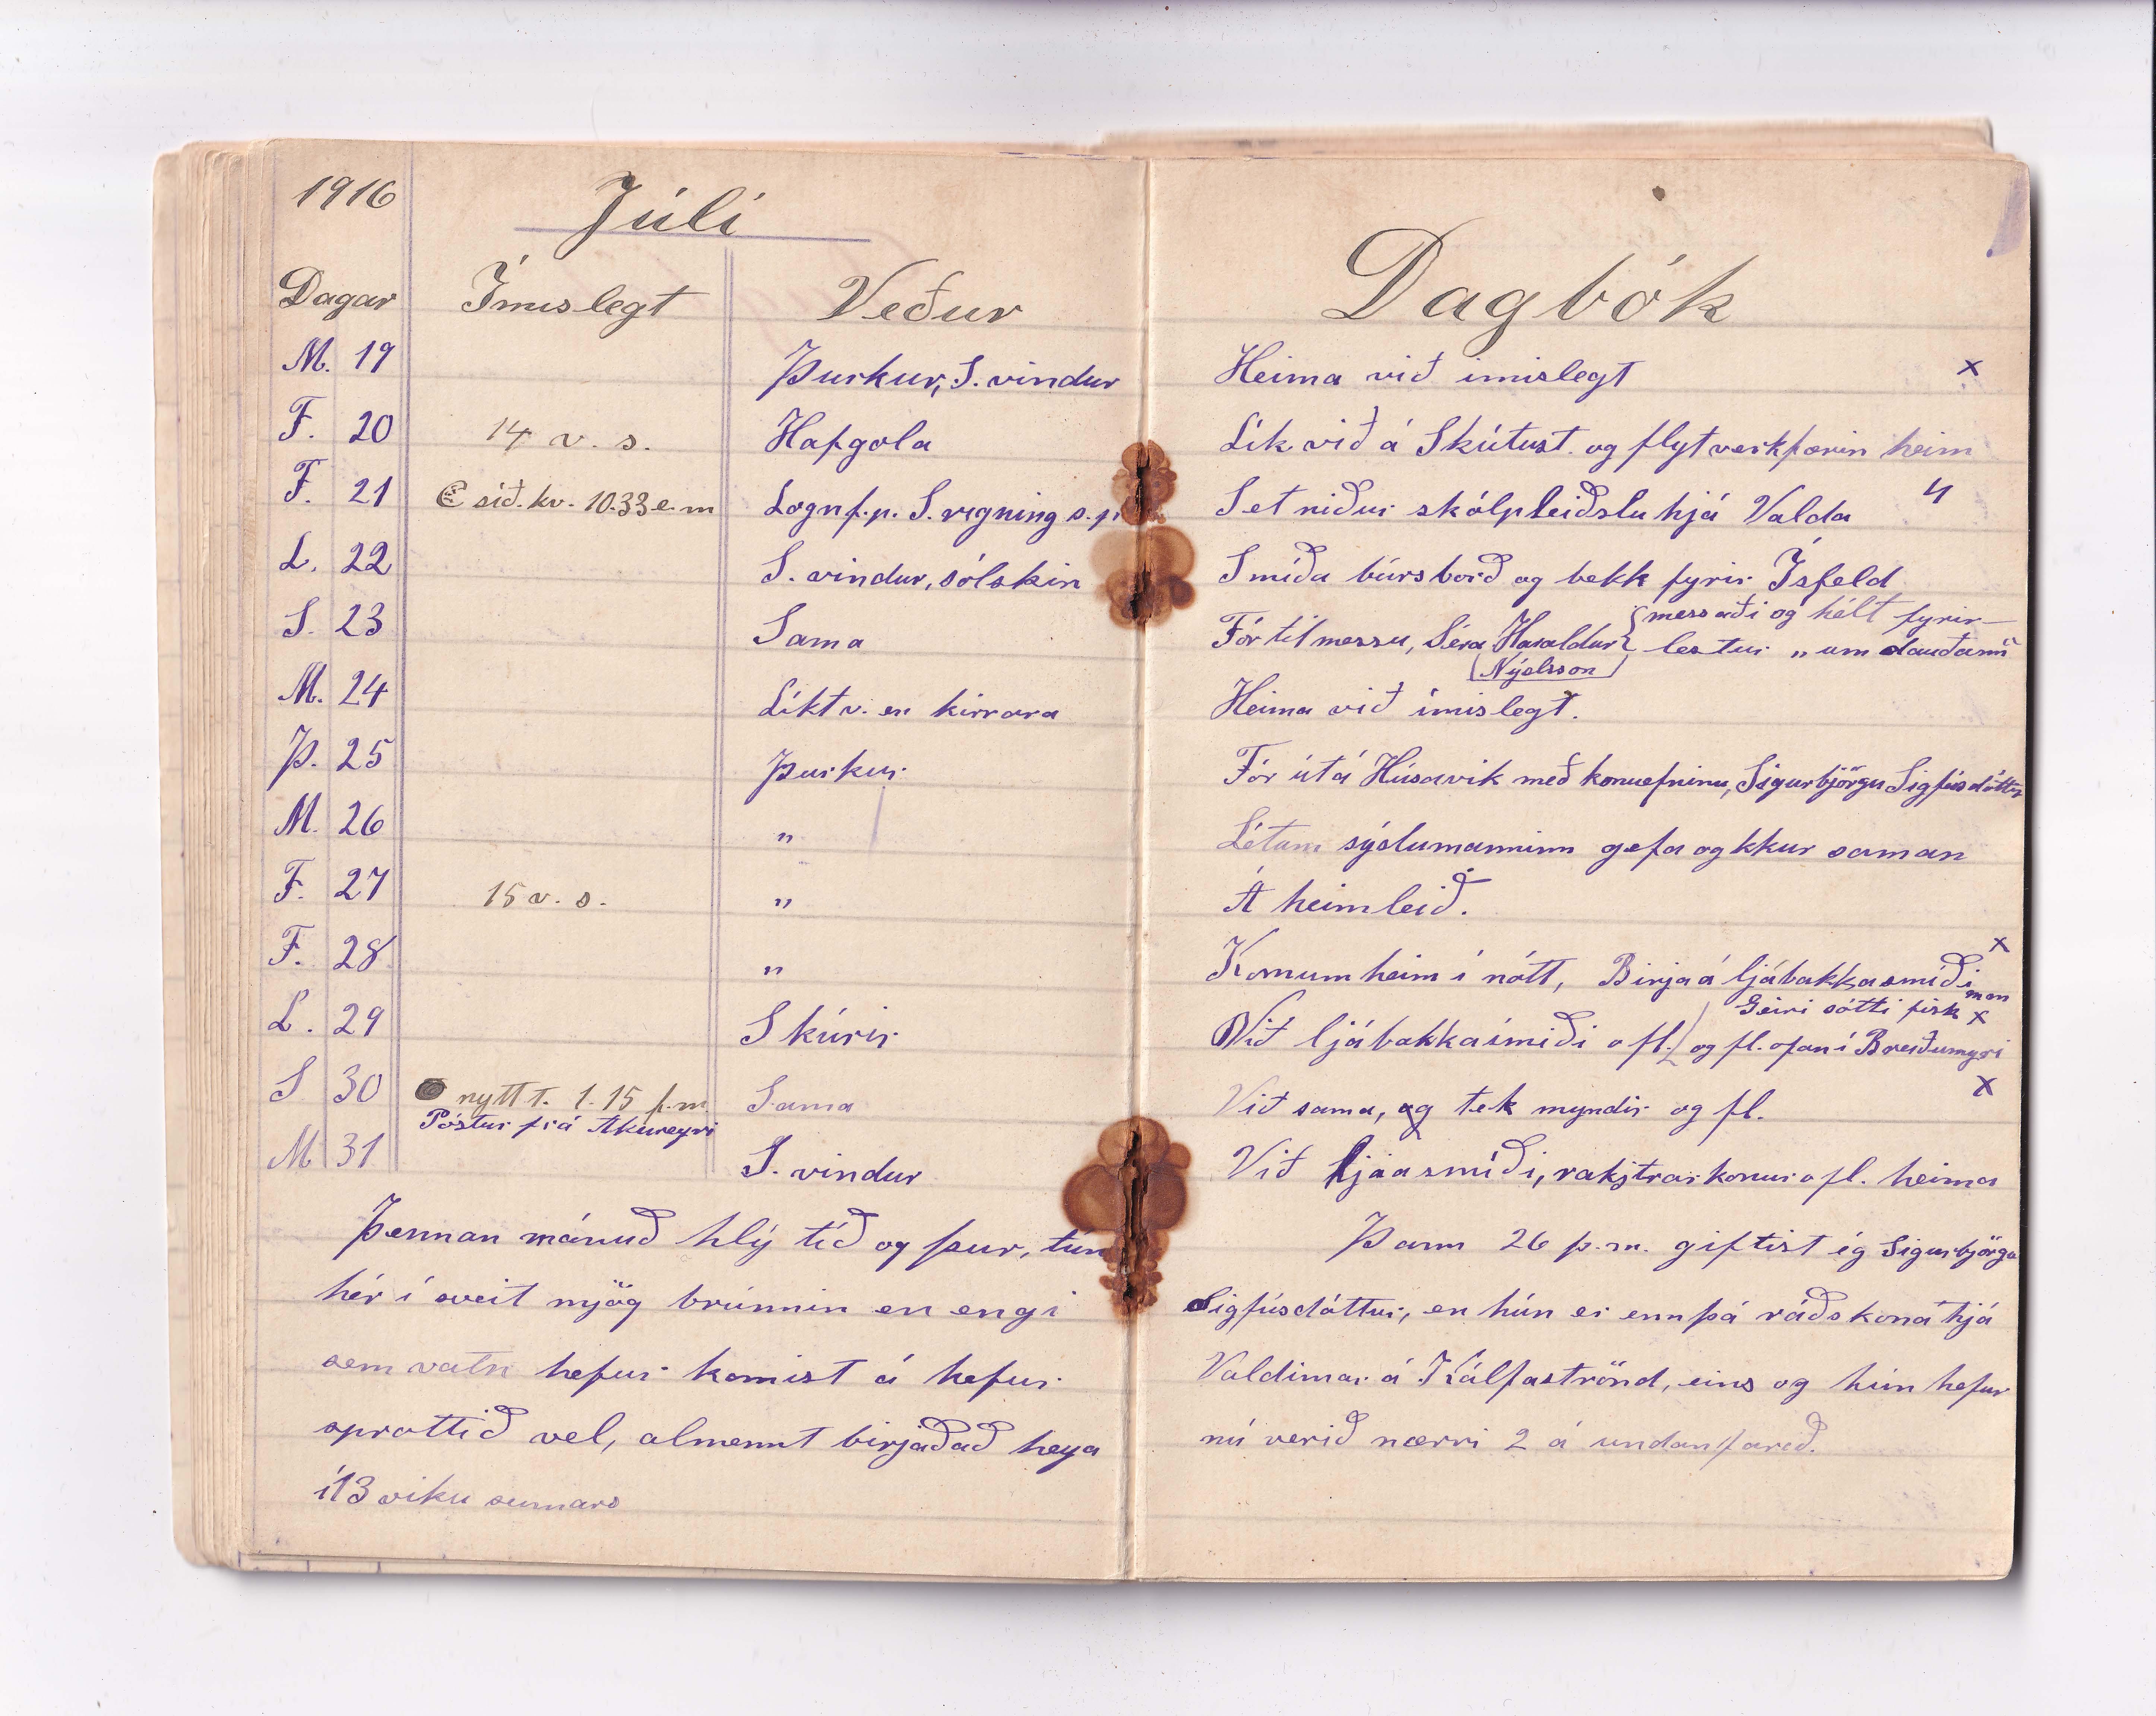 1916
Júlí
Dagar Ímislegt Veður
M. 19 Þurkur, S. vindur
F. 20 14 v. s. Hafgola
F. 21 síð. kv. 10.33 e.m Logn f.p. S. rigning s.p.
L. 22 S. vindur, sólskin
S. 23 Sama
M. 24 Líkt v. en kirrara
Þ. 25 Þurkur
M. 26 "
F. 27 15 v. s. "
F. 28 "
L. 29 Skúrir
S 30 nytt t. 1.15 f.m. Sama
Póstur frá Akureyri
M 31 S. vindur
Þennan mánuð hlý tíð og þur, tún
hér í sveit mjög brunnin en engi
sem vatn hefur komist á hefur
sprottið vel, almennt birjað að heya
í 13 viku sumars
Dagbók
Heima við imislegt x
Lík við á Skútust. og flyt verkfærin heim
Set niður skólpleiðslu hjá Valda 4
Smíða búrsborð og bekk fyrir Ísfeld
messaði og hélt fyrir-
Fór til messu, Séra Haraldur lestur „um dauðann"
Nýelsson
Heima við ímislegt.
Fór útá Húsavik með konuefninu, Sigurbjörgu Sigfúsdóttir
Létum sýslumanninn gefa ogkkur saman
Á heimleið.
Komum heim í nótt, Birja á ljábakkasmíði x
Geiri sótti fisk x
Við ljábakkasmiði ofl. og fl. ofan í Breiðumyri
Við sama, og tek myndir og fl. x
Við ljáasmíði, rakstrarkonur ofl. heima
Þann 26 þ.m. giftist ég Sigurbjörgu
Sigfúsdóttur, en hún er ennþá ráðskona hjá
Valdimar á Kálfaströnd, eins og hún hefur
nú verið nærri 2 á undanfarið.